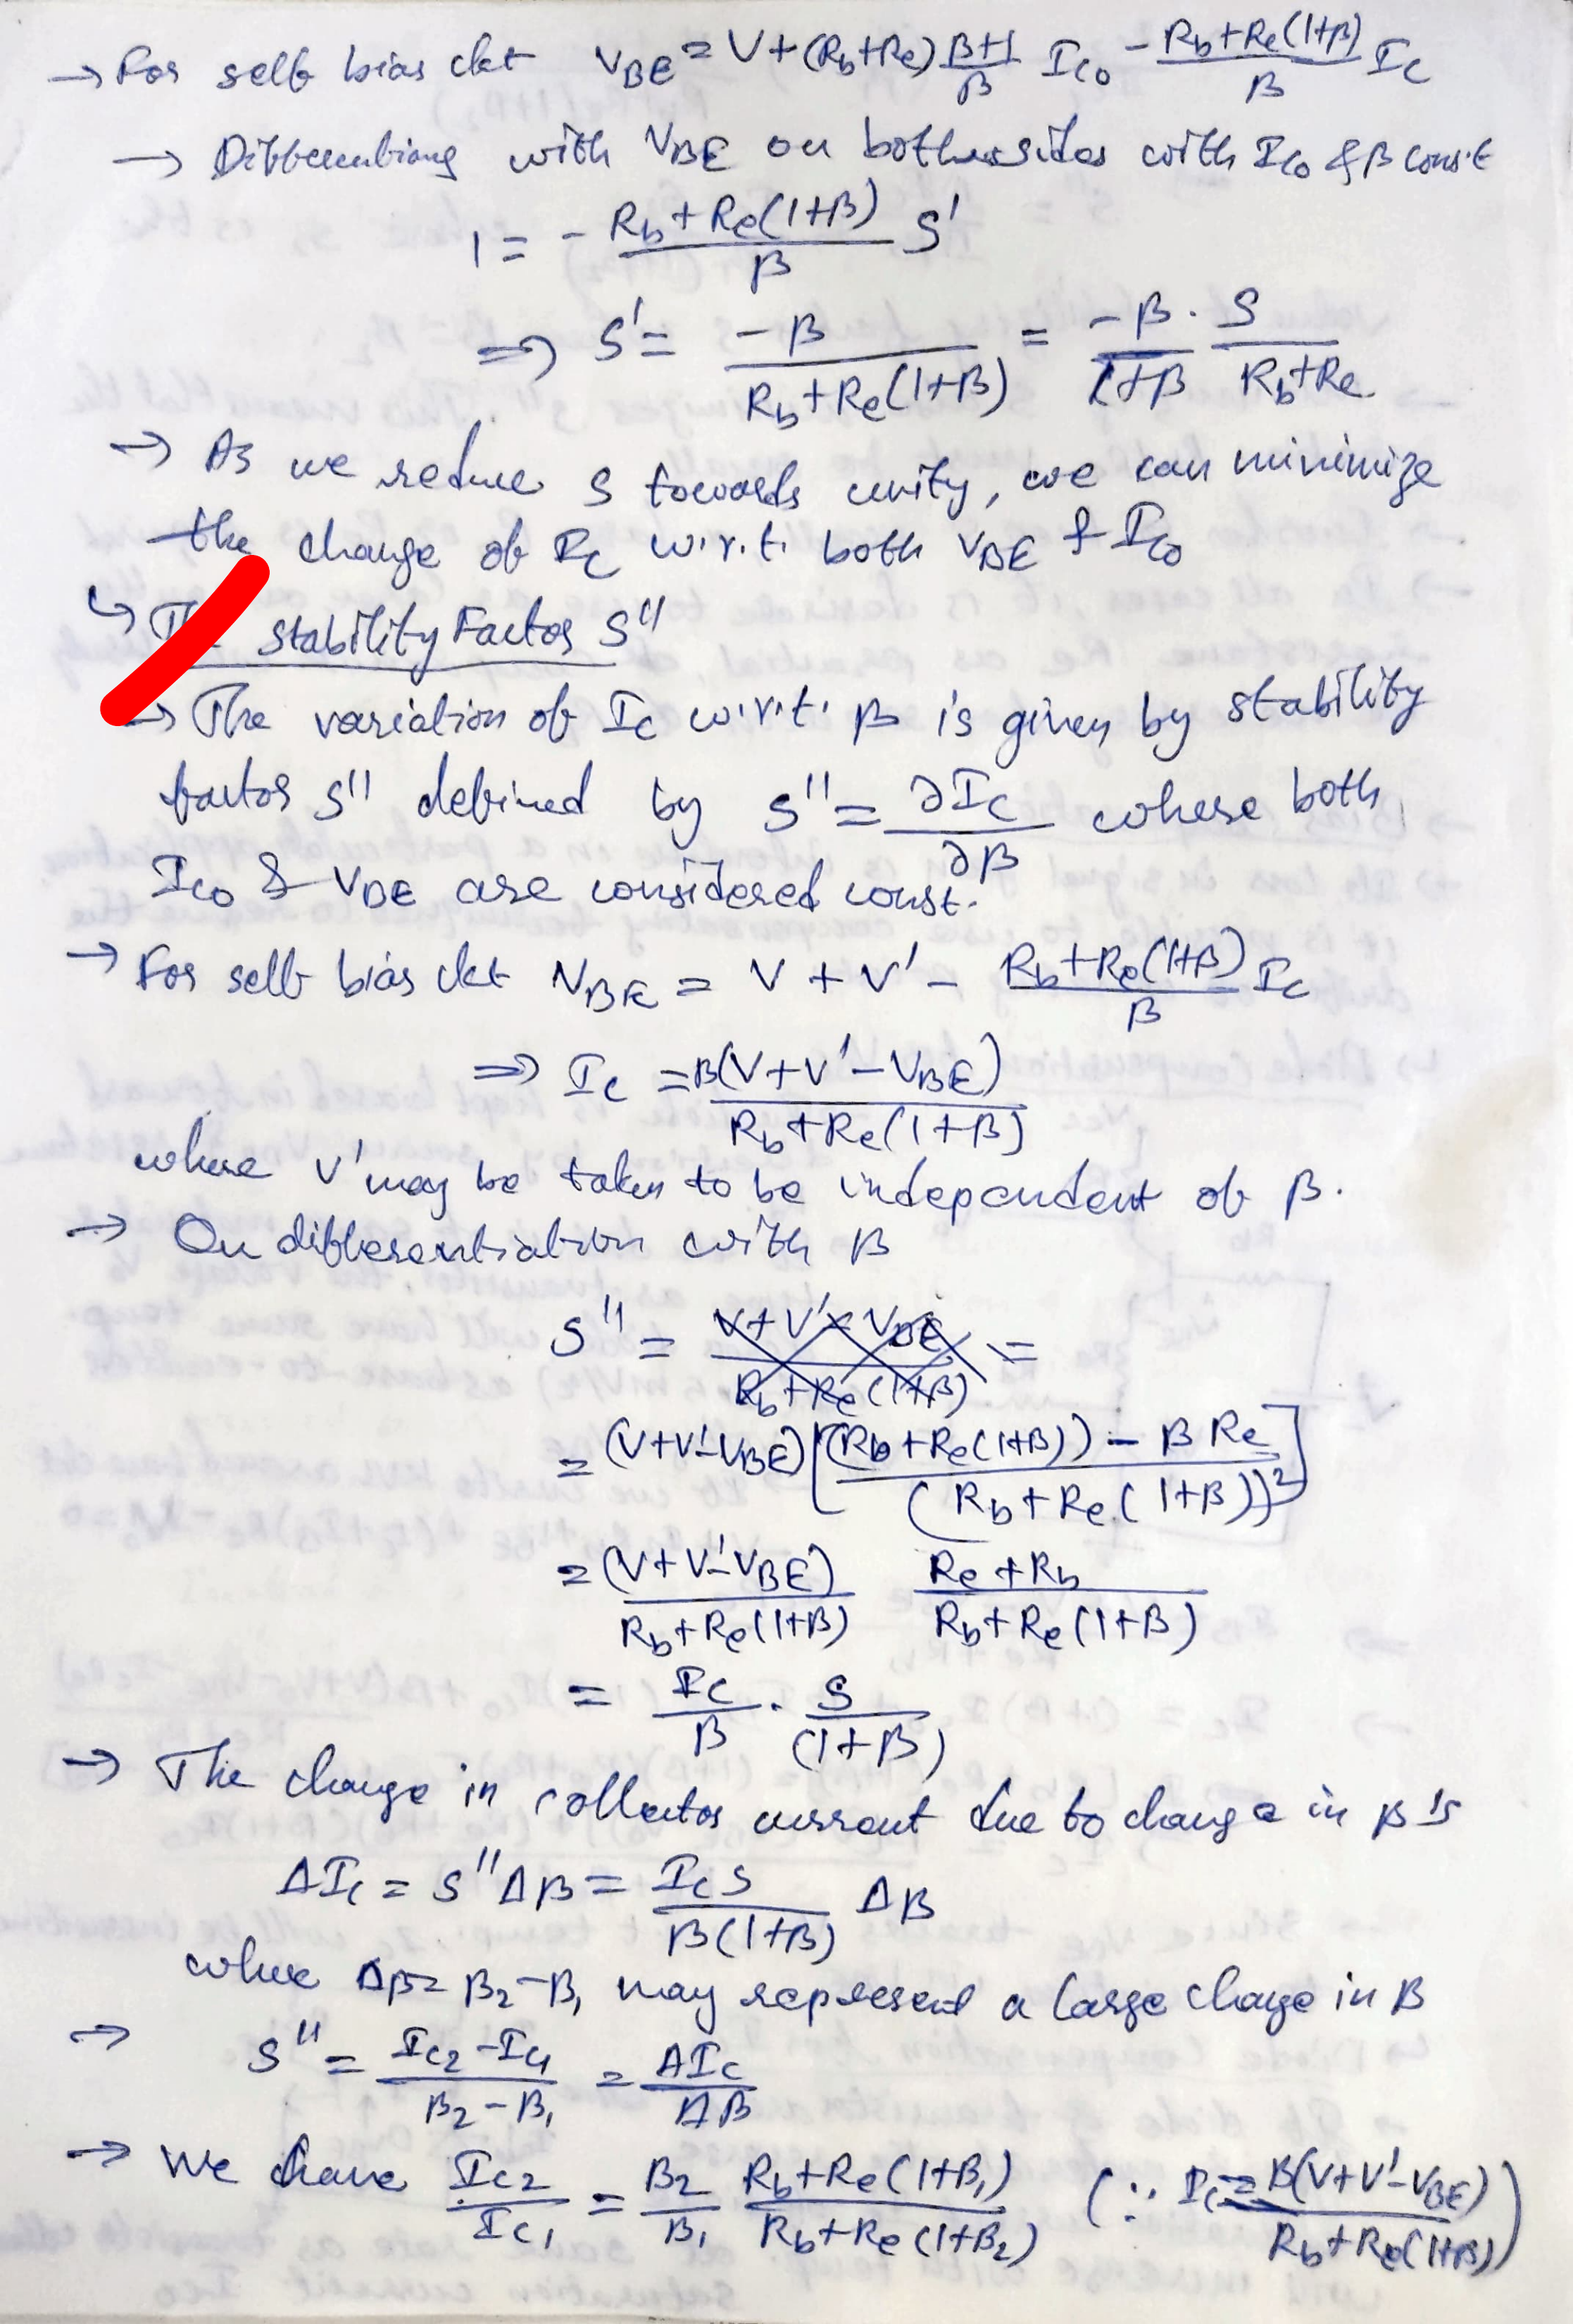 → For self bias ckt V_BE = V + (R_b+R_e) (β+1)/β I_C0 - (R_b+R_e(1+β))/β I_C
→ Differentiang with V_BE on both sides with I_C0 & β const
1 = - (R_b+R_e(1+β))/β S'
⇒ S' = -β/(R_b+R_e(1+β)) = -β/(1+β) · S/(R_b+R_e)
→ As we reduce S towards unity, we can minimize
the change of I_C w.r.t. both V_BE & I_C0
↳ stability Factor S''
→ The variation of I_C w.r.t. β is given by stability
factor S'' defined by S'' = ∂I_C/∂β where both
I_C0 & V_BE are considered const.
→ For self bias ckt V_BE = V + V' - (R_b+R_e(1+β))/β I_C
⇒ I_C = β(V+V'-V_BE)/(R_b+R_e(1+β))
where V' may be taken to be independent of β.
→ On differentiation with β
S'' = =
= (V+V'-V_BE) [((R_b+R_e(1+β)) - β R_e)/(R_b+R_e(1+β))²]
= (V+V'-V_BE)/(R_b+R_e(1+β)) (R_e+R_b)/(R_b+R_e(1+β))
= I_C/β · S/(1+β)
→ The change in collector current due to change in β is
ΔI_C = S''Δβ = I_C S/(β(1+β)) Δβ
where Δβ = β_2-β_1 may represent a large change in β
→ S'' = (I_C2 - I_C1)/(β_2-β_1) = ΔI_C/Δβ
→ We have I_C2/I_C1 = β_2/β_1 (R_b+R_e(1+β_1))/(R_b+R_e(1+β_2)) (∵ I_C = β(V+V'-V_BE)/(R_b+R_e(1+β)))